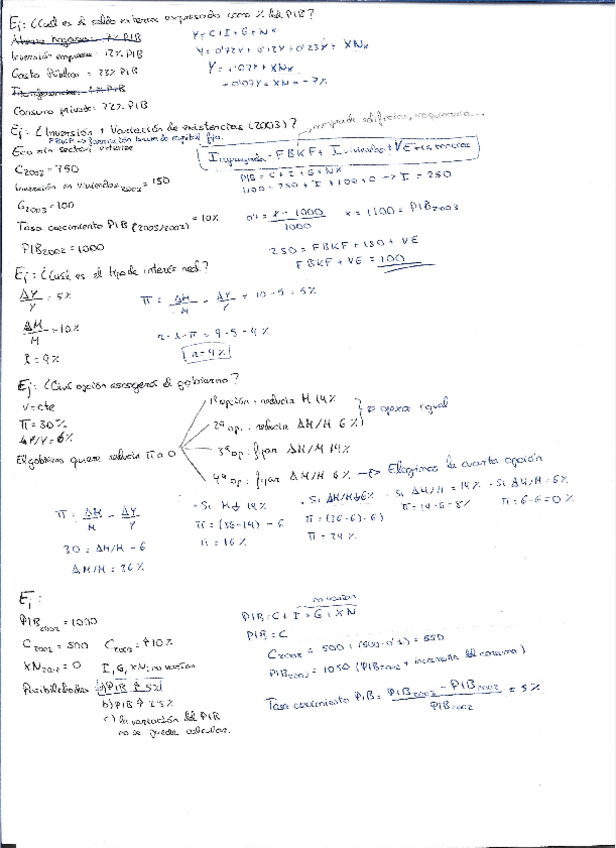 Ej: ¿Cuál es el saldo exterior expresado como % del PIB?
Ahorro negativo: -7% PIB
Inversión empresas: 12% PIB
Gasto Público = 23% PIB
Transferencias: % PIB
Consumo privado: 72% PIB
Y = C + I + G + NX
Y = 0'72Y + 0'12Y + 0'23Y + XN
Y = 1'07Y + XNx
-0'07Y = XN = -7%
Ej: ¿Inversión + Variación de existencias (2003)?
FBKF -> formación bruta de capital fijo.
Eco sin sector exterior
Inversión = FBKF + Iviviendas + VExistencias
C2003 = 750
Inversión en viviendas2003 = 150
G2003 = 100
Tasa crecimiento PIB (2003/2002) = 10%
PIB2002 = 1000
PIB = C + I + G + NX
1100 = 750 + I + 100 + 0 -> I = 250
0'1 = x - 1000 / 1000 x = 1100 = PIB2003
250 = FBKF + 150 + VE
FBKF + VE = 100
Ej: ¿Cuál es el tipo de interés real?
ΔY/Y = 5%
ΔM/M = 10%
R = 9%
π = ΔM/M - ΔY/Y = 10 - 5 = 5%
r = i - π = 9 - 5 = 4%
r = 4%
Ej: ¿Cuál opción escogerá el gobierno?
V = cte
π = 30%
ΔY/Y = 6%
El gobierno quiere reducir π a 0
1ª opción: reducir M 14%
2ª op.: reducir ΔM/M 6%
3ª op: fijar ΔM/M 14%
4ª op: fijar ΔM/M 6% -> Elegimos la cuarta opción
π = ΔM/M - ΔY/Y
30 = ΔM/M - 6
ΔM/M = 36%
- Si M↓ 14%
π = (36-14) - 6
π = 16%
- Si ΔM/M↓6%
π = (36-6) - 6)
π = 24%
- Si ΔM/M = 14%
π = 14 - 6 = 8%
- Si ΔM/M = 6%
π = 6 - 6 = 0%
Ej:
PIB2002 = 1000
C2002 = 500 C2003 = ↑10%
XN2002 = 0 I, G, XN: no varían
Posibilidades: a) PIB ↑ 5%
b) PIB ↑ 2'5%
c) la variación del PIB
no se puede calcular.
no varían
PIB = C + I + G + XN
PIB = C
C2003 = 500 + (500 · 0'1) = 550
PIB2003 = 1050 (PIB2002 + incremento del consumo)
Tasa crecimiento PIB = PIB2003 - PIB2002 / PIB2002 = 5%